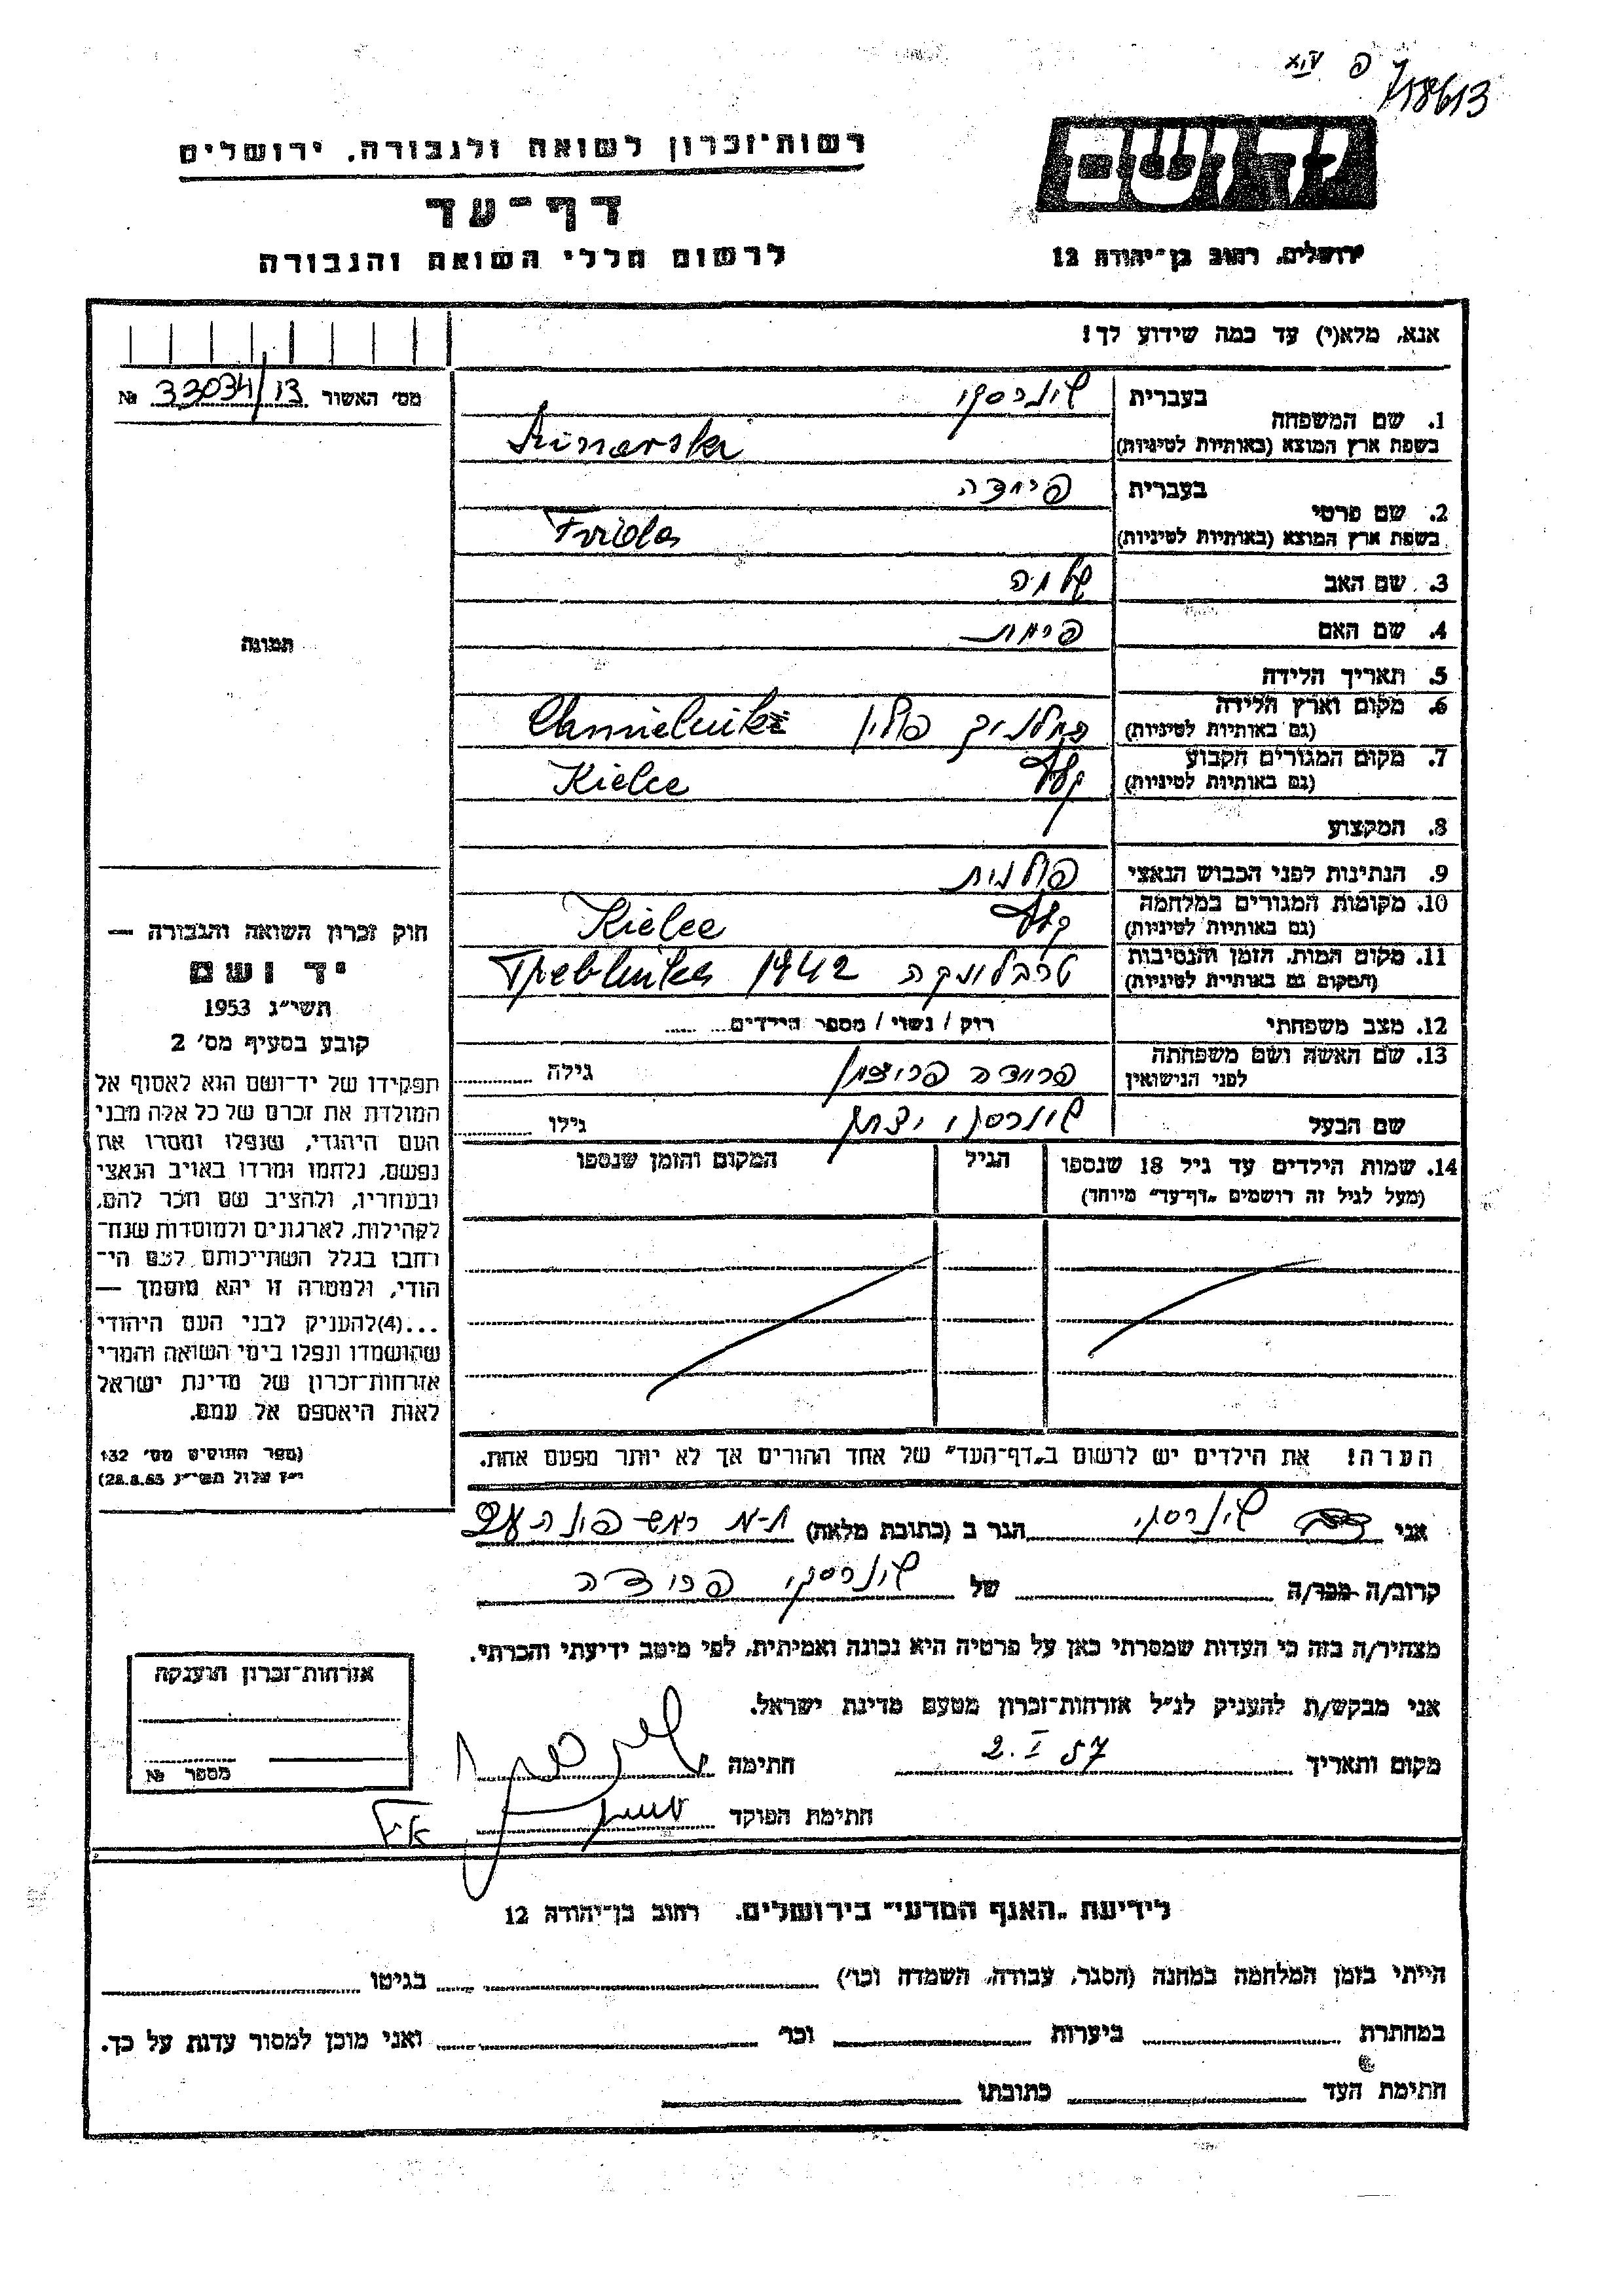 718613
רשות־זכרון לשואה ולגבורה, ירושלים
יד ושם
דף־עד
לרשום חללי השואה והגבורה
ירושלים, רחוב בן־יהודה 12
אנא, מלא(י) עד כמה שידוע לך!
מס׳ האשור 33034/13 №
תמונה
1. שם המשפחה
בעברית
בשפת ארץ המוצא (באותיות לטיניות)
2. שם פרטי
בעברית
בשפת ארץ המוצא (באותיות לטיניות) Frida
3. שם האב
4. שם האם
5. תאריך הלידה
6. מקום וארץ הלידה
(גם באותיות לטיניות) פולין
7. מקום המגורים הקבוע
(גם באותיות לטיניות) Kielce
8. המקצוע
9. הנתינות לפני הכבוש הנאצי פולנית
10. מקומות המגורים במלחמה
(גם באותיות לטיניות) Kielce
11. מקום המות, הזמן והנסיבות
(המקום גם באותיות לטיניות) טרבלינקה 1942 Treblinka
12. מצב משפחתי רוק / נשוי / מספר הילדים
13. שם האשה ושם משפחתה
לפני הנישואין גילה
שם הבעל יצחק גילו
14. שמות הילדים עד גיל 18 שנספו
(מעל לגיל זה רושמים „דף־עד״ מיוחד)
הגיל
המקום והזמן שנספו
הערה! את הילדים יש לרשום ב„דף־העד״ של אחד ההורים אך לא יותר מפעם אחת.
חוק זכרון השואה והגבורה —
יד ושם
תשי״ג 1953
קובע בסעיף מס׳ 2
תפקידו של יד־ושם הוא לאסוף אל
המולדת את זכרם של כל אלה מבני
העם היהודי, שנפלו ומסרו את
נפשם, נלחמו ומרדו באויב הנאצי
ובעוזריו, ולהציב שם וזכר להם,
לקהילות, לארגונים ולמוסדות שנח־
רבו בגלל השתייכותם לעם הי־
הודי, ולמטרה זו יהא מוסמך —
...(4)להעניק לבני העם היהודי
שהושמדו ונפלו בימי השואה והמרי
אזרחות־זכרון של מדינת ישראל
לאות היאספם אל עמם.
(ספר החוקים מס׳ 132
י״ז אלול תשי״ג 28.8.53)
אני הגר ב (כתובת מלאה) ת-א
קרוב/ה מכר/ה של
מצהיר/ה בזה כי העדות שמסרתי כאן על פרטיה היא נכונה ואמיתית, לפי מיטב ידיעתי והכרתי.
אני מבקש/ת להעניק לנ״ל אזרחות־זכרון מטעם מדינת ישראל.
מקום ותאריך 2.I 57 חתימה
חתימת הפוקד
אזרחות־זכרון הוענקה
מספר №
לידיעת „האגף המדעי״ בירושלים, רחוב בן־יהודה 12
הייתי בזמן המלחמה במחנה (הסגר, עבודה, השמדה וכו׳) בגיטו
במחתרת ביערות וכו׳ ואני מוכן למסור עדות על כך.
חתימת העד כתובתו